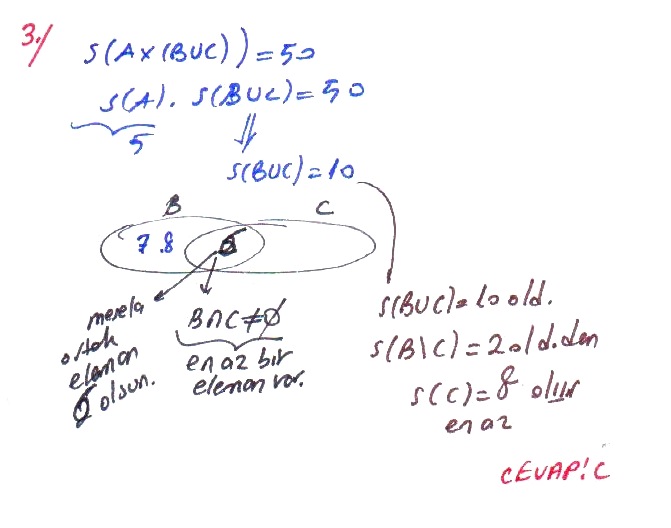 3./
s(A×(BUC))=50
s(A). s(BUC)=50
5
⇓
s(BUC)=10
B C
7.8
mesela
ortak
eleman
olsun.
B∩C≠∅
en az bir
eleman var.
s(BUC)=10 old.
s(B\C)=2 old.dan
s(C)=8 olur
en az
CEVAP:C